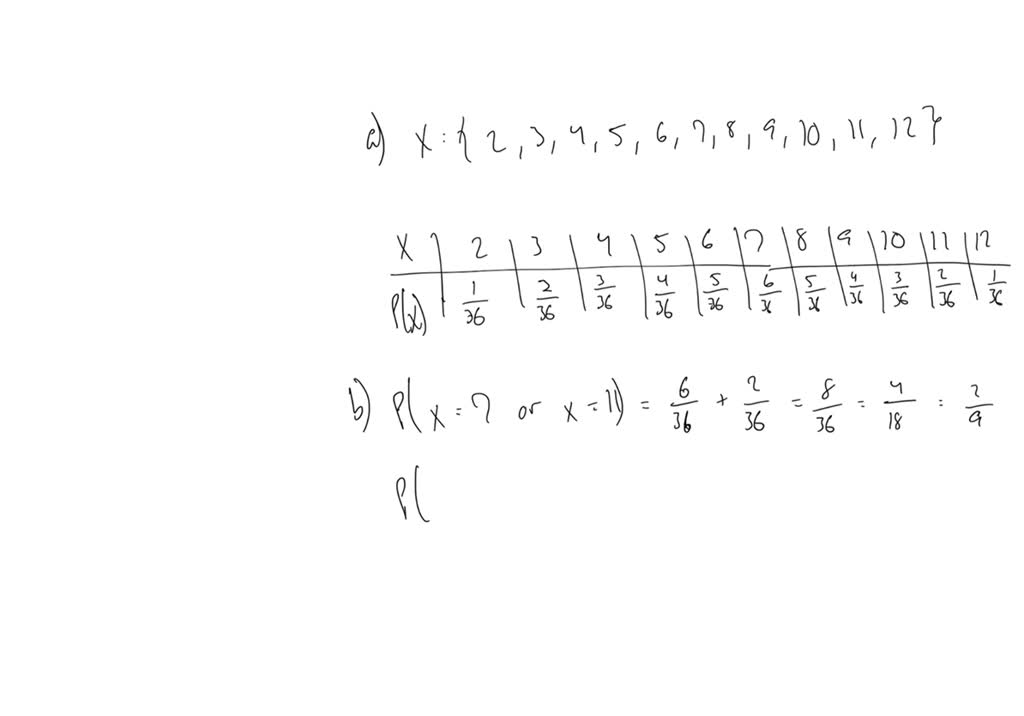 a) X : { 2, 3, 4, 5, 6, 7, 8, 9, 10, 11, 12 }
X | 2 | 3 | 4 | 5 | 6 | 7 | 8 | 9 | 10 | 11 | 12
P(x) | 1/36 | 2/36 | 3/36 | 4/36 | 5/36 | 6/36 | 5/36 | 4/36 | 3/36 | 2/36 | 1/36
b) P( x = 7 or x = 11) = 6/36 + 2/36 = 8/36 = 4/18 = 2/9
P(